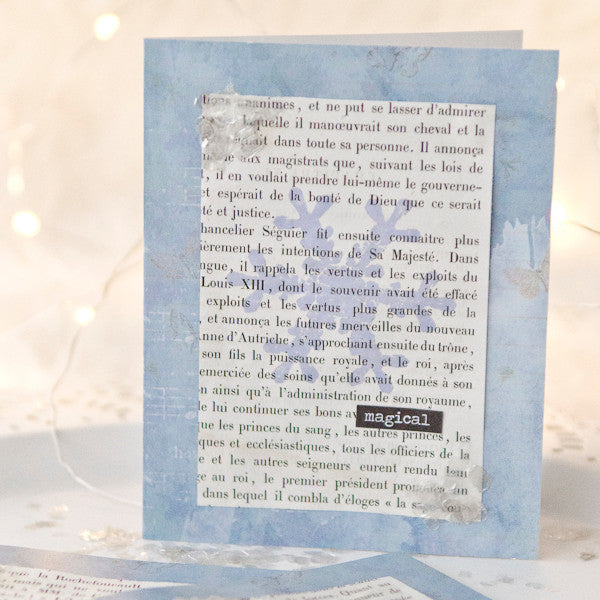 unanimes, et ne put se lasser d'admirer
laquelle il manœuvrait son cheval et la
dans toute sa personne. Il annonça
aux magistrats que, suivant les lois de
, il en voulait prendre lui-même le gouverne-
et espérait de la bonté de Dieu que ce serait
té et justice.
hancelier Séguier fit ensuite connaitre plus
ièrement les intentions de Sa Majesté. Dans
ngue, il rappela les vertus et les exploits du
Louis XIII, dont le souvenir avait été effacé
exploits et les vertus plus grandes de la
, et annonça les futures merveilles du nouveau
nne d'Autriche, s'approchant ensuite du trône,
son fils la puissance royale, et le roi, après
emerciée des soins qu'elle avait donnés à son
n ainsi qu'à l'administration de son royaume,
le lui continuer ses bons av
magical
que les princes du sang, les autres princes, les
ques et ecclésiastiques, tous les officiers de la
e et les autres seigneurs eurent rendu leur
ge au roi, le premier président un
dans lequel il combla d'éloges « la
par la Rochefoucault